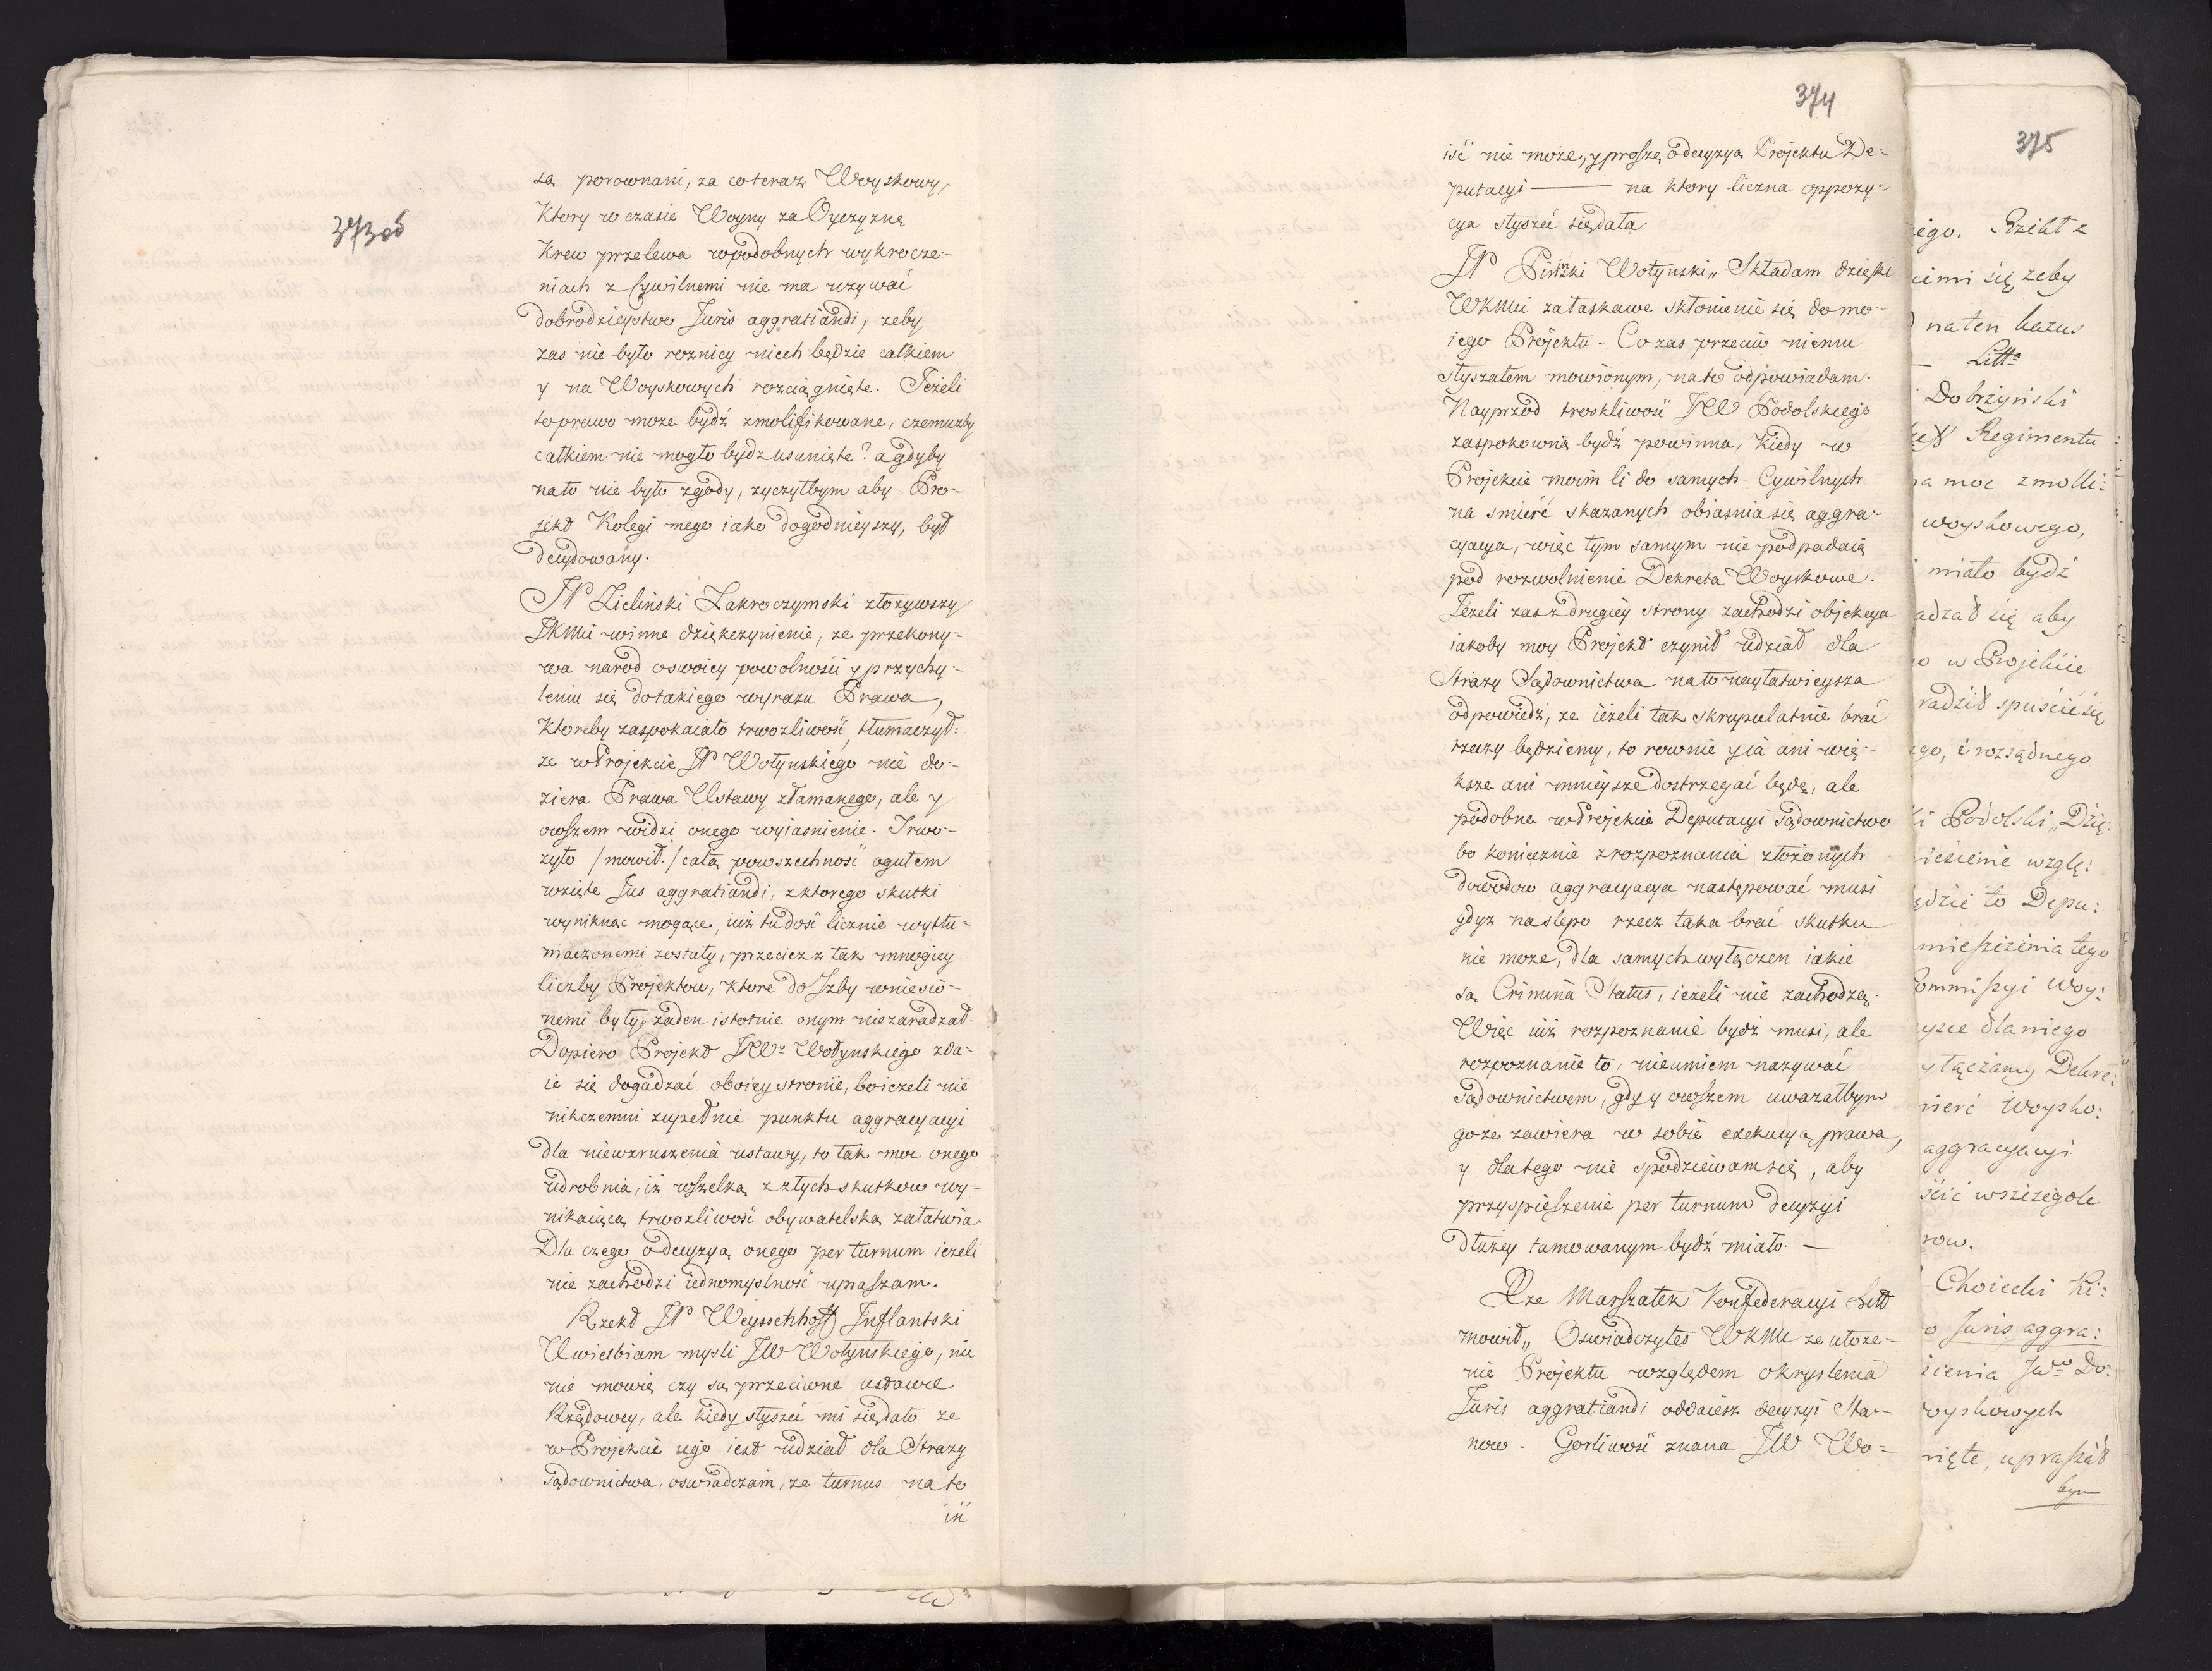 373 od
są porownani, za co teraz Woyskowy,
Ktory w czasie Woyny za Oyczyznę
Krew przelewa w podobnych wykrocze-
niach z Cywilnemi nie ma uzywać
Dobrodzieystwo Juris aggratiandi, zeby
zas nie było roznicy niech będzie całkiem
y na Woyskowych rozciągnięte. Jeżeli
to prawo moze bydź zmolifikowane, czemuzby
całkiem nie mogło bydz usunięte? a gdyby
na to nie było zgody, zyczyłbym aby Pro-
jekt Kolegi mego iako Dogodnieyszy, był
Decydowany.
JP Zieliński Zakroczymski złozywszy
JKMći winne dziękczynienie, ze przekony-
wa narod o swoiey powolności y przychy-
leniu się do takiego wyrazu Prawa,
Ktoreby zaspokaiało trwozliwość, tłumaczył:
ze w Projekcie JP Wołynskiego nie do-
ziera Prawa Ustawy złamanego, ale y
owszem widzi onego wyiasnienie. Trwo-
zyło /mowił./ całą powszechność ogułem
wzięte Jus aggratiandi, z ktorego skutki
wyniknąc mogące, iuż tu dość licznie wytłu-
maczonemi zostały, przeciez z tak mnogiey
liczby Projektow, ktore do Izby wniesio-
nemi były, żaden istotnie onym nie zaradzał.
Dopiero Projekt JWo Wołynskiego zda-
ie się dogadzać oboiey stronie, bo ieżeli nie
nikczemni zupełnie punktu aggracyacyi
dla niewzruszenia ustawy, to tak moc onego
udrobnia, iż wszelką z złych skutkow wy-
nikaiącą trwozliwość obywatelską załatwia.
Dla czego o decyzyą onego per turnum ieżeli
nie zachodzi iednomyslność upraszam.
Rzekł JP Weyssenhoff Inflantski
Uwielbiam mysli JW Wołynskiego, nic
nie mowię czy są przeciwne ustawie
Rządowey, ale kiedy styszeć mi się dało ze
w Projekcie iego iest udział dla Strazy
sądownictwa, oswiadczam, ze turnus na to
iść
374
iść nie może, y proszę o decyzyą Projektu De-
putacyi ——— na ktory liczna oppozy-
cya styszeć się dała.
JP Piński Wołynski „Składam dzięki
WKMći za łaskawe skłonienie się do mo-
iego Projektu. Co zas przeciw niemu
styszałem mowionym, na to odpowiadam.
Nayprzod troskliwość JW Podolskiego
zaspokowną bydź powinna, kiedy w
Projekcie moim li do samych Cywilnych
na smierć skazanych obiasnia się aggra-
cyacya, więc tym samym nie podpadaią
pod rozwolnienie Dekreta Woyskowe.
Jeżeli zas z drugiey strony zachodzi objekcya
iakoby moy Projekt czynił udział dla
Strazy Sądownictwa na to nayłatwieysza
odpowiedź, ze ieżeli tak skrupulatnie brać
rzeczy będziemy, to rownie y ia ani wię-
ksze ani mnieysze dostrzegać będę, ale
podobne w Projekcie Deputacyi Sądownictwo
bo koniecznie z rozpoznania złożonych
dowodow aggracyacya następować musi
gdyz na slepo rzecz taka brać skutku
nie moze, dla samych wyłączen iakie
są Crimina Status, ieżeli nie zachodzą.
Więc iuż rozpoznanie bydź musi, ale
rozpoznanie to, nie umiem nazywać
Sądownictwem, gdy y owszem uwazałbym
go ze zawiera w sobie exekucyą prawa,
y dla tego nie spodziewam się, aby
przyspieszenie per turnum decyzyi
dłużey tamowanym bydź miało. —
Xże Marszałek Konfederacyi Litt
mowił „ Oswiadczyłeś WKMć ze ułoze-
nie Projektu względem okryslenia
Juris aggratiandi oddaiesz decyzyi Sta-
now. Gorliwość znana JW Wo-
375
iego. Rzekł z
iemi się zeby
na ten kazus
Litta
Dobrzyński
Regimentu
a moc zmolli:
woyskowego,
miało bydź
adzał się aby
o w Projekcie
radził spuścić się
go, i rozsądnego
i Podolski „Dzię:
iesienie wzglę:
ędzie to Depu:
mieszczenia tego
ommissyi Woy:
ysce dla niego
yłączamy Dekre:
mierć Woysko:
aggracyacyi
ścić wszczegole
row.
Choiecki Ki:
o Juris aggra:
ienia JWo Do:
oyskowych
nięte, upraszał
bym